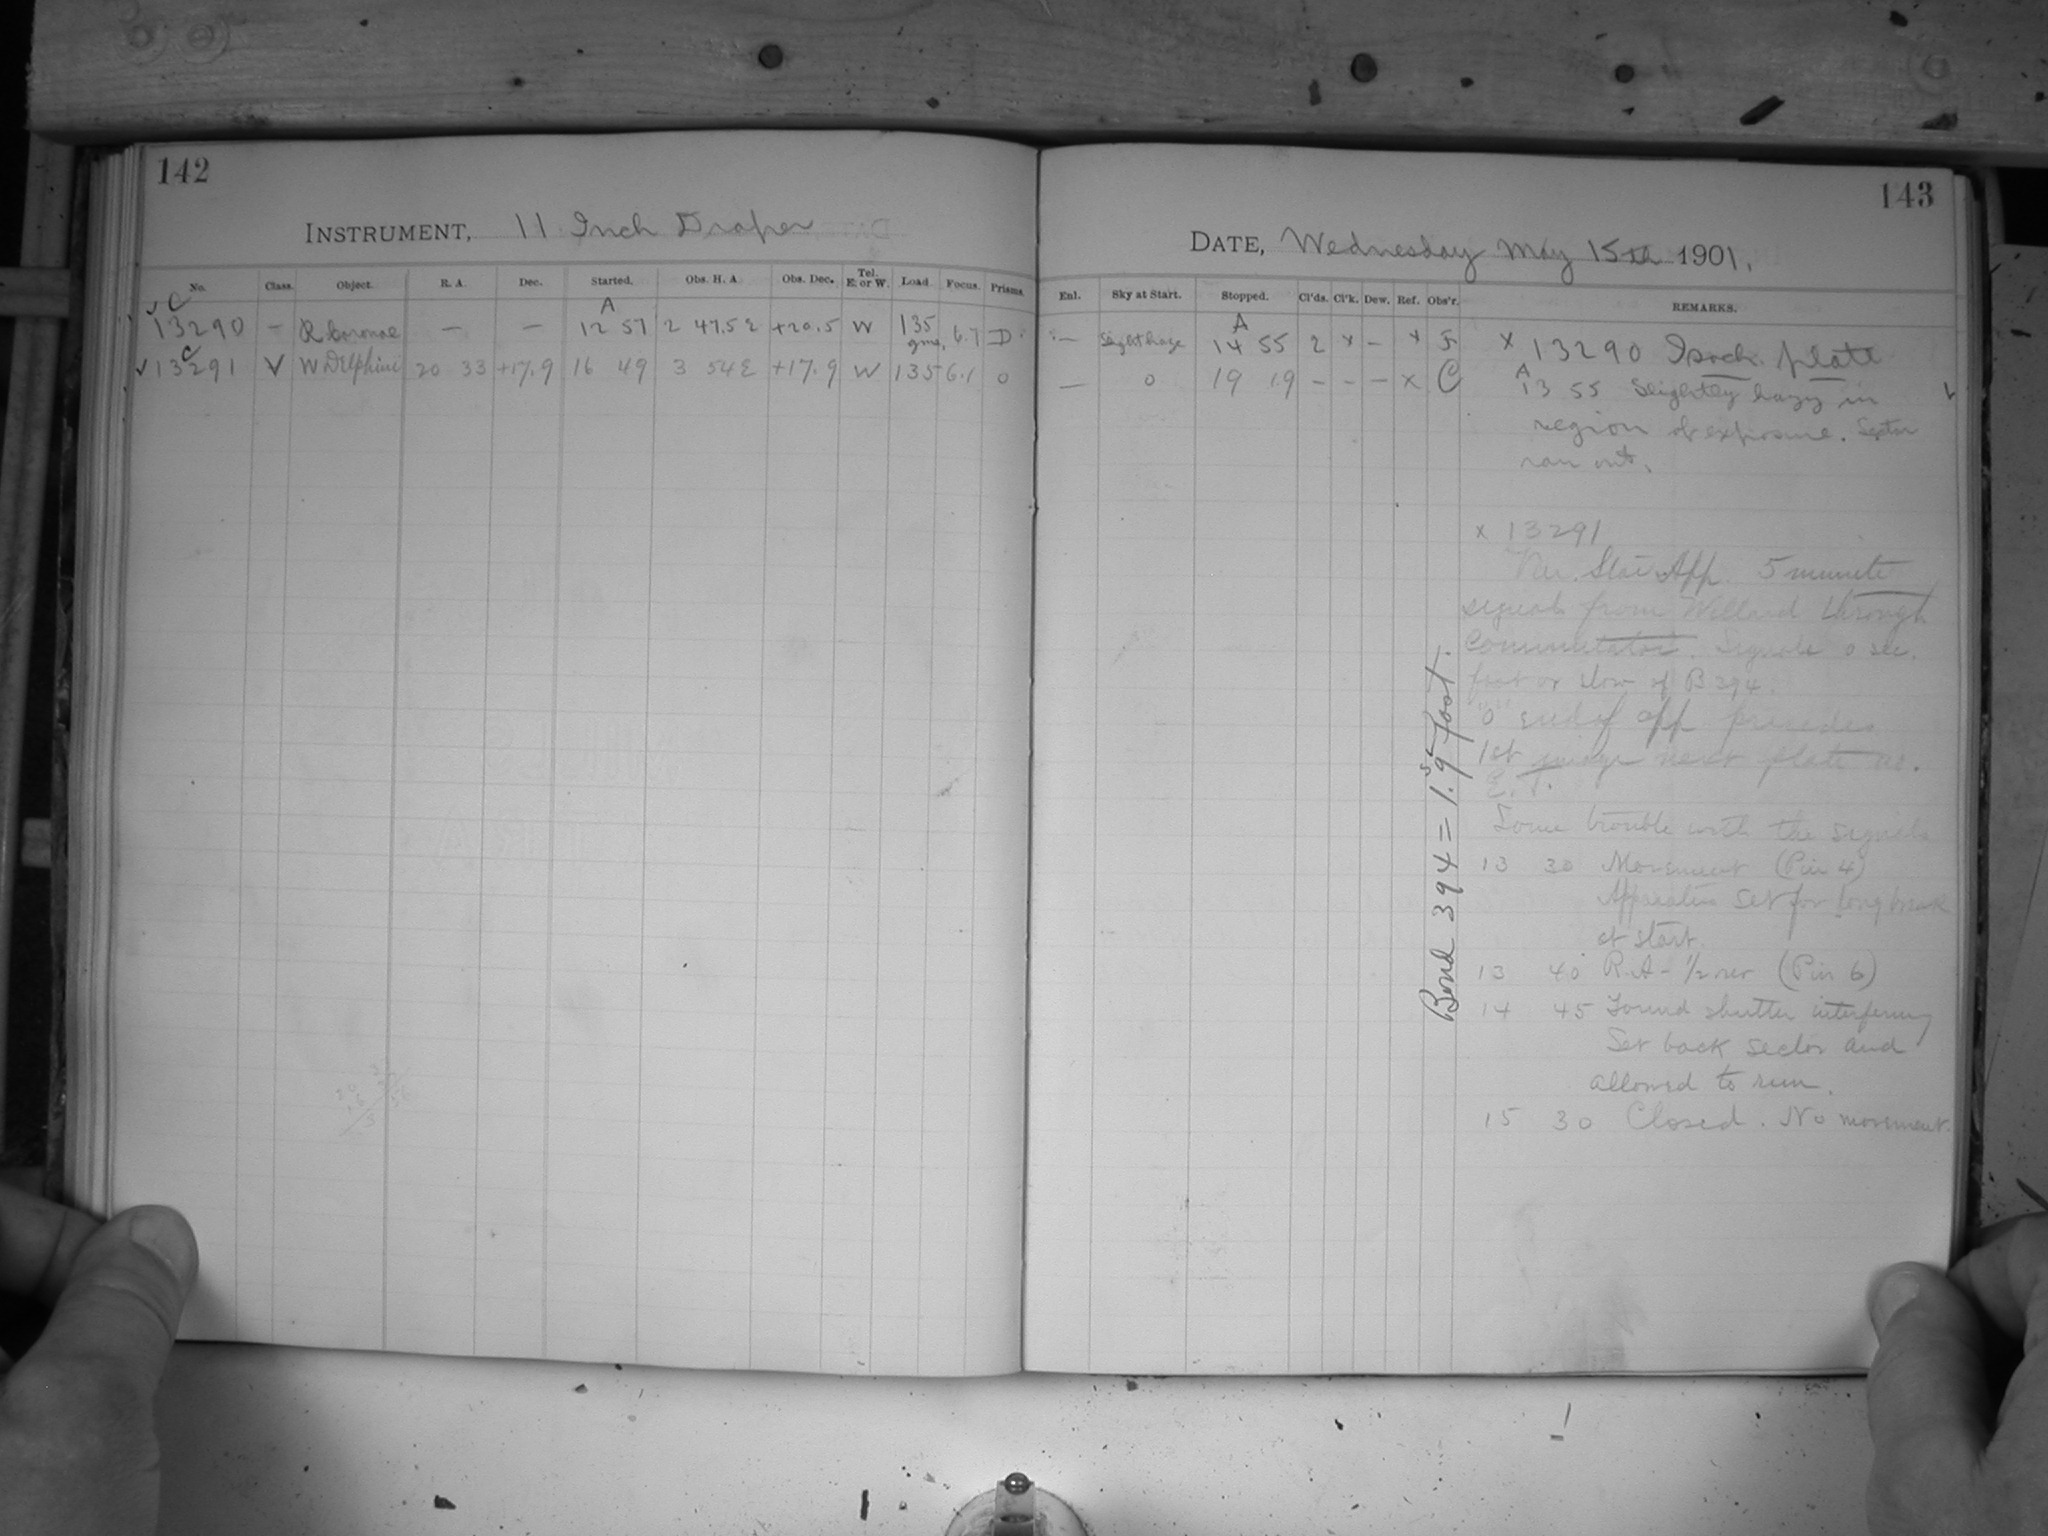 142
INSTRUMENT, 11 Inch Draper
No. Class. Object. R. A. Dec. Started. Obs. H. A. Obs. Dec. Tel. E. or W. Load. Focus. Prisms.
✓ C A
13290 — R Coronae — — 12 57 2 47.5 E +20.5 W 135 gms. 6.7 D
✓ C
13291 V W Delphini 20 33 +17.9 16 49 3 54 E +17.9 W 135 6.1 0
143
DATE, Wednesday May 15th 1901.
Enl. Sky at Start. Stopped. Cl'ds. Cl'k. Dew. Ref. Obs'r. REMARKS.
A
— Slight haze 14 55 2 x — x F x 13290 Isoch. plate
— 0 19 19 — — — x C
A
13 55 Slightly hazy in
region of exposure. Sector
ran out.
x 13291
Var. Star App. 5 minute
signals from Willard through
Commutator. Signals 0 sec.
fast or slow of B 394.
"0" end of app precedes
1st image next plate no.
E. T.
Some trouble with the signals
13 30 Movement (Pin 4)
Apparatus set for long break
at start.
13 40 R.A - 1/2 rev (Pin 6)
14 45 Found shutter interfering
Set back sector and
allowed to run.
15 30 Closed. No movement.
Bond 394 = 1.9 s fast.